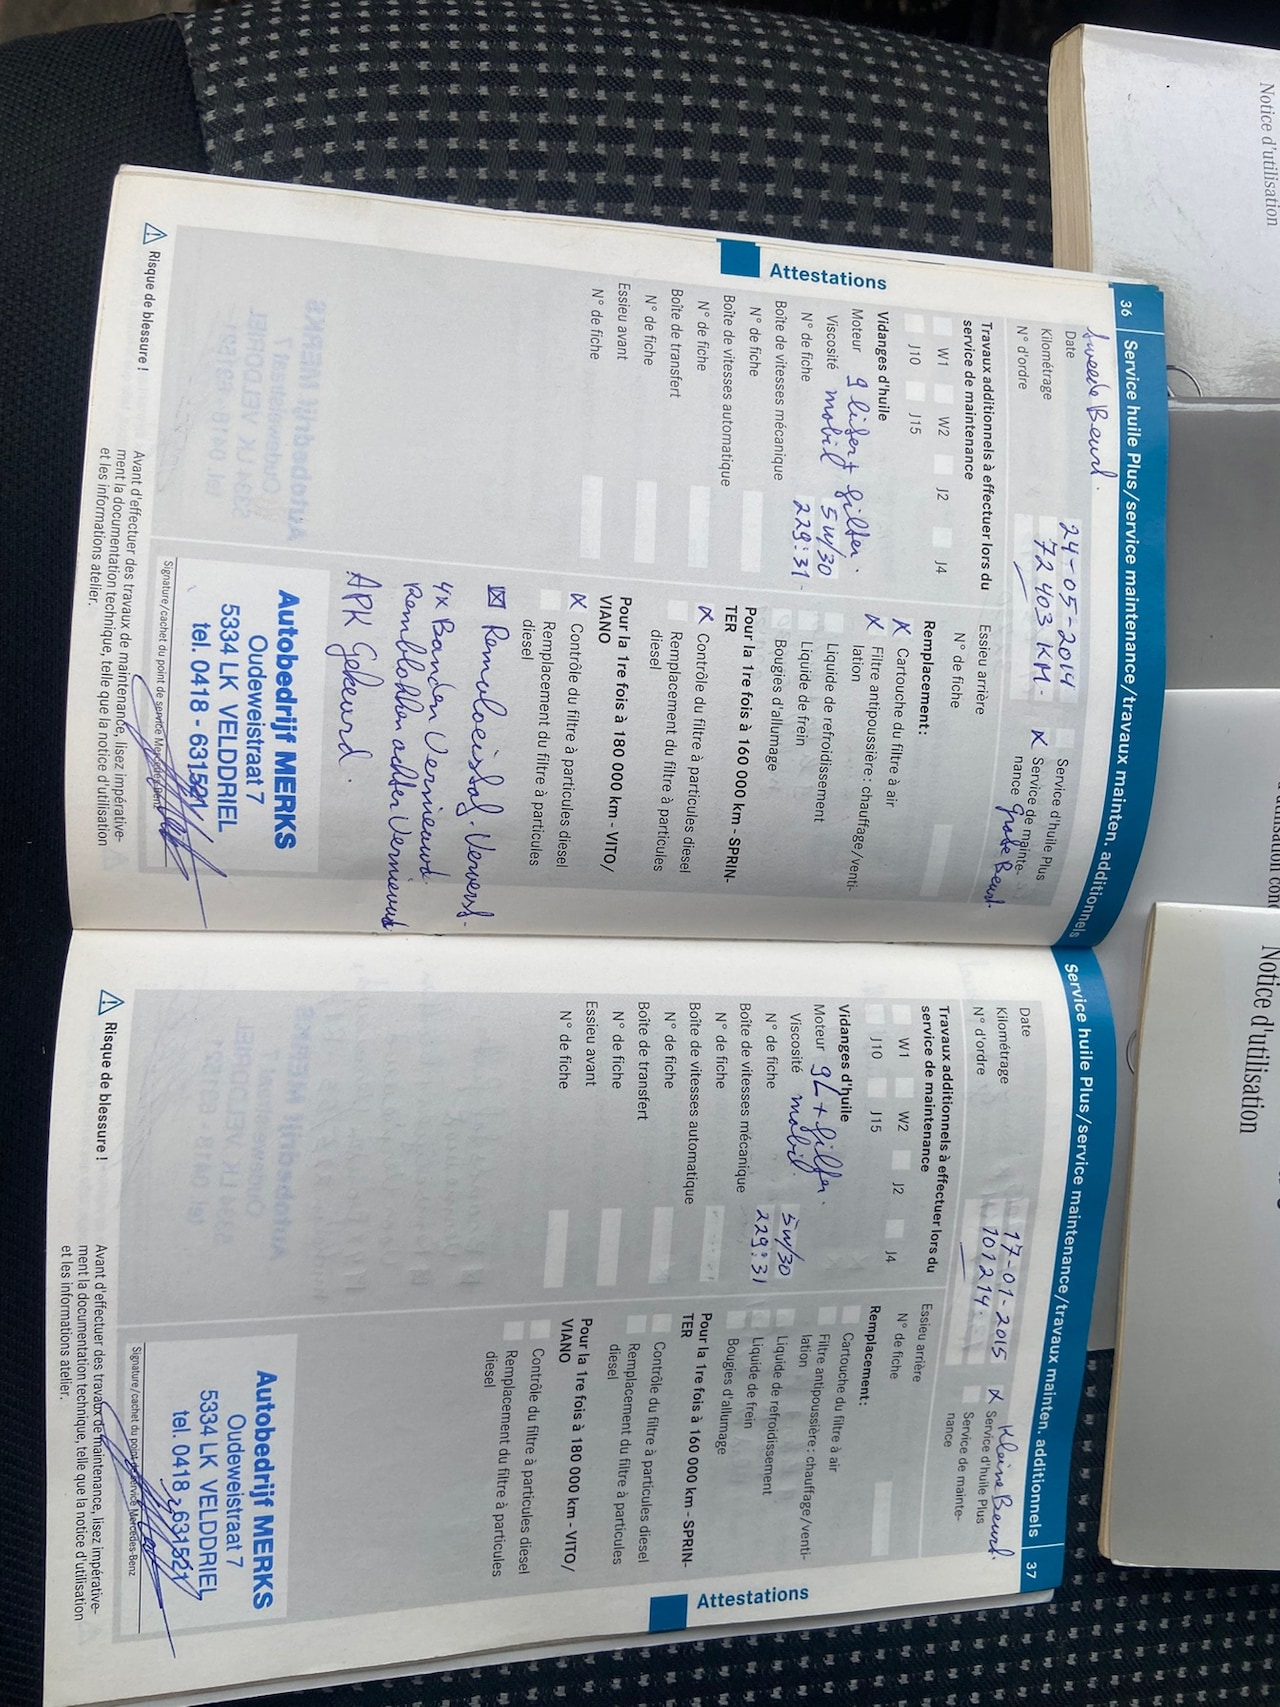 36 Service huile Plus/service maintenance/travaux mainten. additionnels
tweede Beurt.
Date 24-05-2014
Kilométrage 72403 KM-
N° d'ordre
Service d'huile Plus
X Service de mainte-
nance grote Beurt
Travaux additionnels à effectuer lors du
service de maintenance
W1 W2 J2 J4
J10 J15
Vidanges d'huile
Moteur 9 liter + filter.
Viscosité mobil 5W/30
N° de fiche 229:31-
Boîte de vitesses mécanique
N° de fiche
Boîte de vitesses automatique
N° de fiche
Boîte de transfert
N° de fiche
Essieu avant
N° de fiche
Essieu arrière
N° de fiche
Remplacement :
X Cartouche du filtre à air
X Filtre antipoussière : chauffage/venti-
lation
Liquide de refroidissement
Liquide de frein
Bougies d'allumage
Pour la 1re fois à 160 000 km - SPRIN-
TER
X Contrôle du filtre à particules diesel
Remplacement du filtre à particules
diesel
Pour la 1re fois à 180 000 km - VITO/
VIANO
X Contrôle du filtre à particules diesel
Remplacement du filtre à particules
diesel
☒ Remvloeistof. Ververst.
4x Banden Vernieuwd
Remblokken achter Vernieuwd
APK Gekeurd.
Autobedrijf MERKS
Oudeweistraat 7
5334 LK VELDDRIEL
tel. 0418 - 631521
Signature/cachet du point de service Mercedes-Benz
Risque de blessure !
Avant d'effectuer des travaux de maintenance, lisez impérative-
ment la documentation technique, telle que la notice d'utilisation
et les informations atelier.
Attestations
Service huile Plus/service maintenance/travaux mainten. additionnels 37
Date 17-01-2015
Kilométrage 101214.
N° d'ordre
Kleine Beurt.
X Service d'huile Plus
Service de mainte-
nance
Travaux additionnels à effectuer lors du
service de maintenance
W1 W2 J2 J4
J10 J15
Vidanges d'huile
Moteur 9L + filter.
Viscosité mobil. 5W/30
N° de fiche 229:31
Boîte de vitesses mécanique
N° de fiche
Boîte de vitesses automatique
N° de fiche
Boîte de transfert
N° de fiche
Essieu avant
N° de fiche
Essieu arrière
N° de fiche
Remplacement :
Cartouche du filtre à air
Filtre antipoussière : chauffage/venti-
lation
Liquide de refroidissement
Liquide de frein
Bougies d'allumage
Pour la 1re fois à 160 000 km - SPRIN-
TER
Contrôle du filtre à particules diesel
Remplacement du filtre à particules
diesel
Pour la 1re fois à 180 000 km - VITO/
VIANO
Contrôle du filtre à particules diesel
Remplacement du filtre à particules
diesel
Autobedrijf MERKS
Oudeweistraat 7
5334 LK VELDDRIEL
tel. 0418 - 631521
Signature/cachet du point de service Mercedes-Benz
Risque de blessure !
Avant d'effectuer des travaux de maintenance, lisez impérative-
ment la documentation technique, telle que la notice d'utilisation
et les informations atelier.
Attestations
Notice d'utilisation
Notice d'utilisation